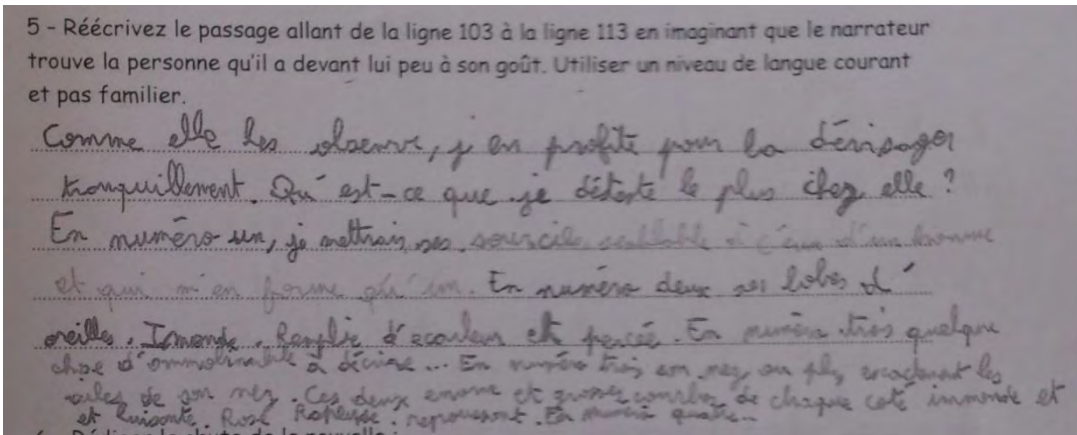 5 - Réécrivez le passage allant de la ligne 103 à la ligne 113 en imaginant que le narrateur
trouve la personne qu'il a devant lui peu à son goût. Utiliser un niveau de langue courant
et pas familier.
Comme elle les observe, j'en profite pour la dévisager
tranquillement. Qu'est-ce que je déteste le plus chez elle ?
En numéro un, je mettrais ses sourcils à d'un homme
et qui n'en forme qu'un. En numéro deux ses lobes d'
oreilles. Imonde. Remplie d' et percée. En numéro trois quelque
chose d' à décrire ... En numéro trois son nez ou plus les
ailes de son nez. Ces deux enorme et grosse de chaque coté immonde et
et luisante. Rose repoussant. En numéro quatre...